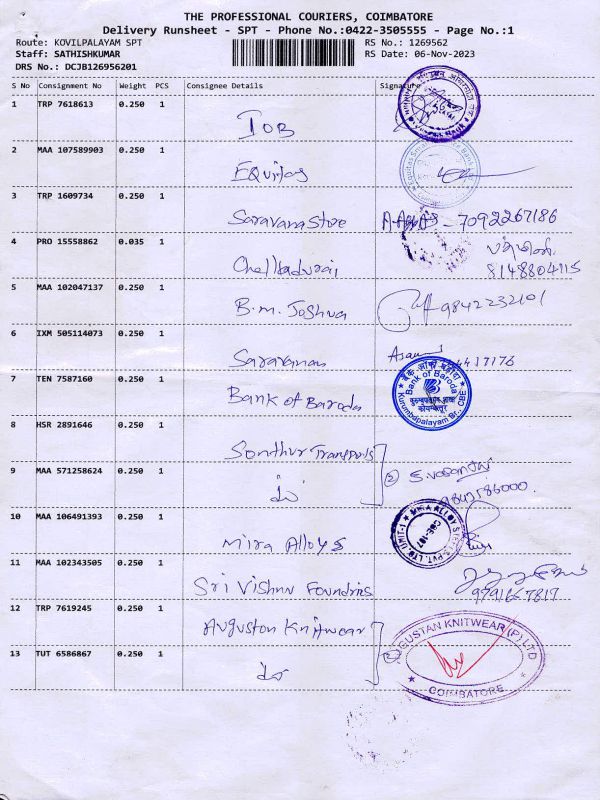 THE PROFESSIONAL COURIERS, COIMBATORE
Delivery Runsheet - SPT - Phone No.:0422-3505555 - Page No.:1
Route: KOVILPALAYAM SPT
RS No.: 1269562
Staff: SATHISHKUMAR
RS Date: 06-Nov-2023
DRS No.: DCJB126956201
S No Consignment No Weight PCS Consignee Details Signature
1 TRP 7618613 0.250 1 IOB
2 MAA 107589903 0.250 1 Equitas
3 TRP 1609734 0.250 1 Saravana Store 7092267186
4 PRO 15558862 0.035 1 Chelladurai 8148804115
5 MAA 102047137 0.250 1 B.m. Joshua 9842232101
6 IXM 505114073 0.250 1 Saravanan 4417176
7 TEN 7587160 0.250 1 Bank of Baroda
Bank of Baroda
Kurumbdapalayam Br., CBE
8 HSR 2891646 0.250 1
9 MAA 571258624 0.250 1 ② S.vasanthi
10 MAA 106491393 0.250 1 Mira Alloys
MIRA ALLOY STEELS PVT. LTD. UNIT-I
11 MAA 102343505 0.250 1 Sri Vishnu Foundries 9791667817
12 TRP 7619245 0.250 1 Auguston Knitwear
AUGUSTAN KNITWEAR (P) LTD
13 TUT 6586867 0.250 1
COIMBATORE